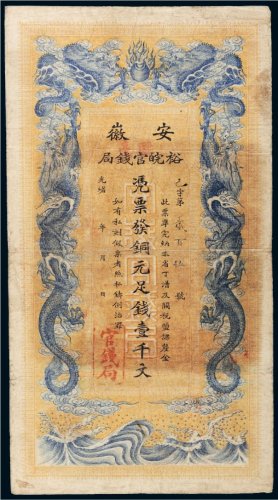 安徽
裕皖官錢局
己字第貳百伍號
此票準完納本省丁漕及關稅鹽課釐金
憑票發銅元足錢壹千文
如有私刻假票者照私鑄例治罪
光緒 年 月 日
官錢局